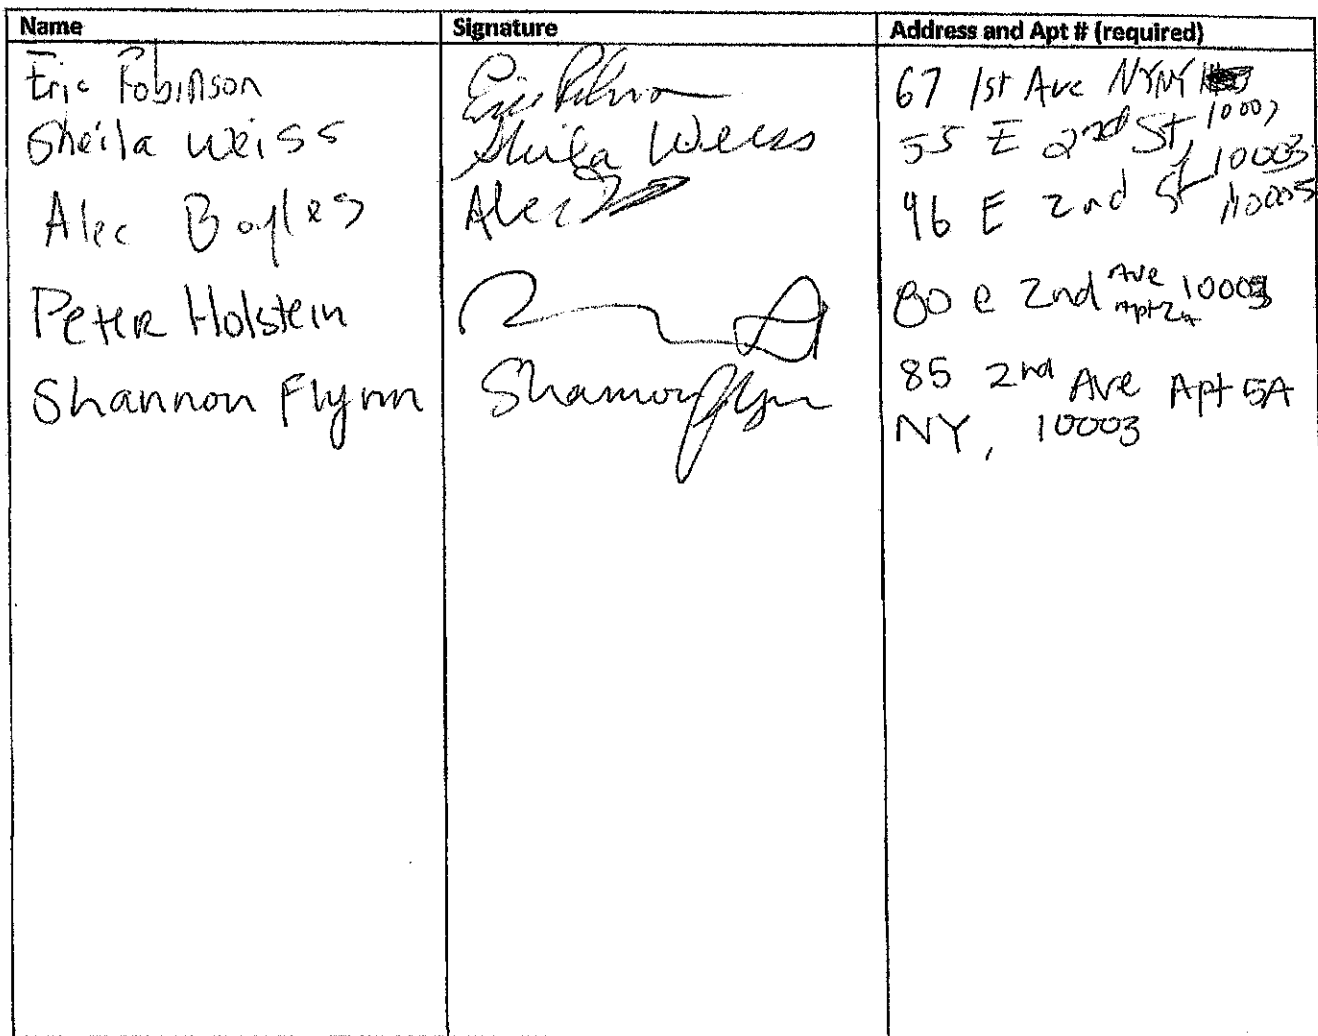 Name Signature Address and Apt # (required)
Eric Robinson 67 1st Ave NYNY 10003
Sheila Weiss Sheila Weiss 55 E 2nd St, 10003
Alec Boyles Alec 96 E 2nd St 10003
Peter Holstein 80 e 2nd Ave Apt 10003
Shannon Flynn Shannon Flynn 85 2nd Ave Apt 5A
NY, 10003